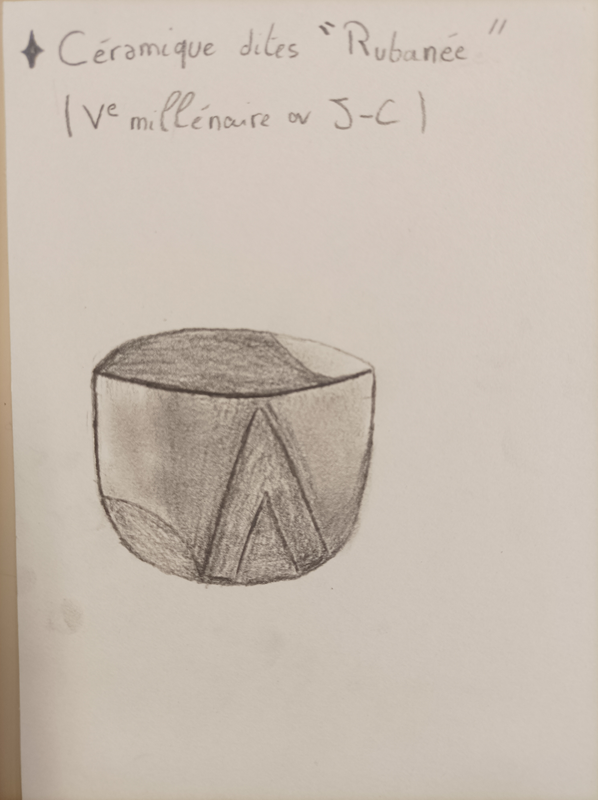 Céramique dites "Rubanée"
(Ve millénaire av J-C)